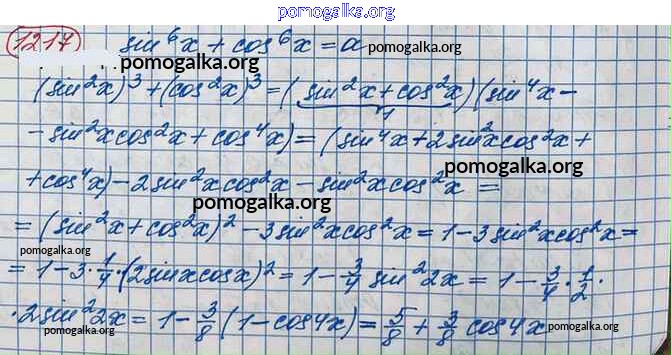 pomogalka.org
1217 sin⁶x + cos⁶x = a pomogalka.org
pomogalka.org
(sin²x)³ + (cos²x)³ = (sin²x + cos²x)(sin⁴x -
1
- sin²x cos²x + cos⁴x) = (sin⁴x + 2sin²x cos²x +
pomogalka.org
+ cos⁴x) - 2sin²x cos²x - sin²x cos²x =
pomogalka.org
= (sin²x + cos²x)² - 3sin²x cos²x = 1 - 3sin²x cos²x =
pomogalka.org pomogalka.org
= 1 - 3 · 1/4 · (2sinx cosx)² = 1 - 3/4 sin²2x = 1 - 3/4 · 1/2 ·
· 2sin²2x = 1 - 3/8 (1 - cos4x) = 5/8 + 3/8 cos4x
pomogalka.org pomogalka.org pomogalka.org